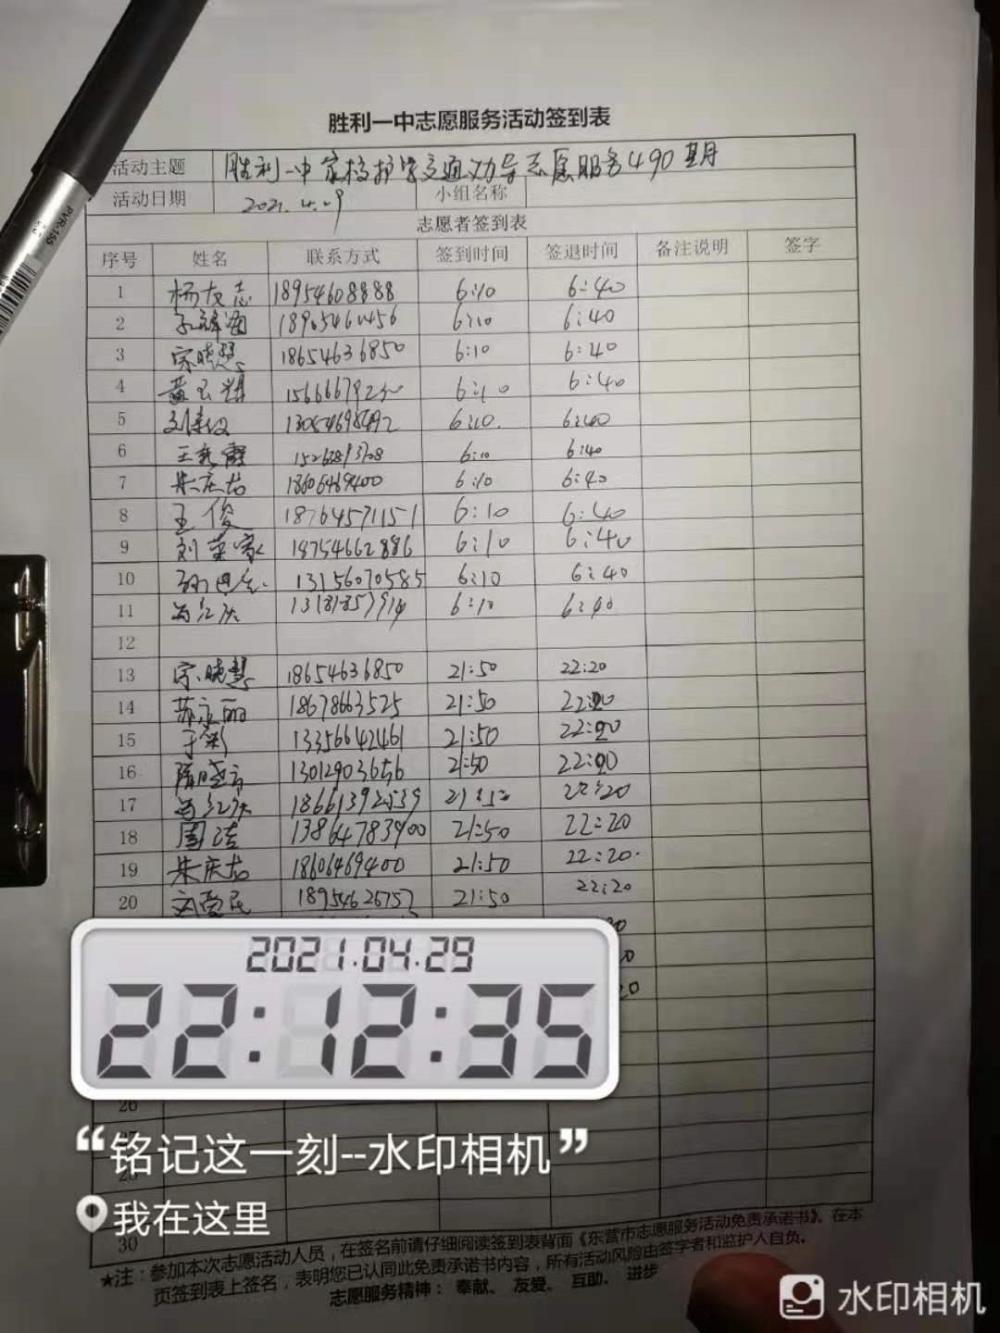 胜利一中志愿服务活动签到表
活动主题 胜利一中家校护学交通劝导志愿服务490期
活动日期 2021.4.29 小组名称
志愿者签到表
序号 姓名 联系方式 签到时间 签退时间 备注说明 签字
1 杨友志 18954608888 6:10 6:40
2 6:10 6:40
3 宋晓慧 18654636850 6:10 6:40
4 6:10 6:40
5 6:10. 6:40
6 6:10 6:40
7 朱庆吉 18606469400 6:10 6:40
8 王俊 18764571151 6:10 6:40
9 18754662886 6:10 6:40
10 13156070585 6:10 6:40
11 6:10 6:40
12
13 宋晓慧 18654636850 21:50 22:20
14 苏永丽 18678663525 21:50 22:20
15 13356642461 21:50 22:20
16 13012903656 21:50 22:20
17 18661392539 21:50 22:20
18 周洁 13864783900 21:50 22:20
19 朱庆吉 18606469400 21:50 22:20.
20 18954626757 21:50 22:20
2021.04.29
22:12:35
26
“铭记这一刻--水印相机”
我在这里
30
★注:参加本次志愿活动人员,在签名前请仔细阅读签到表背面《东营市志愿服务活动免责承诺书》。在本
页签到表上签名,表明您已认同此免责承诺书内容,所有活动风险由签字者和监护人自负。
志愿服务精神:奉献、友爱、互助、进步
水印相机